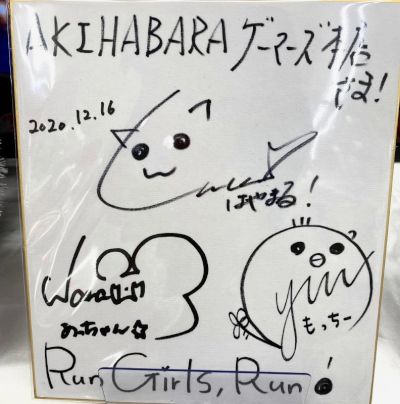 AKIHABARA ゲーマーズ本店
さま!
2020.12.16
はやまる!
もっちー
Run Girls, Run!